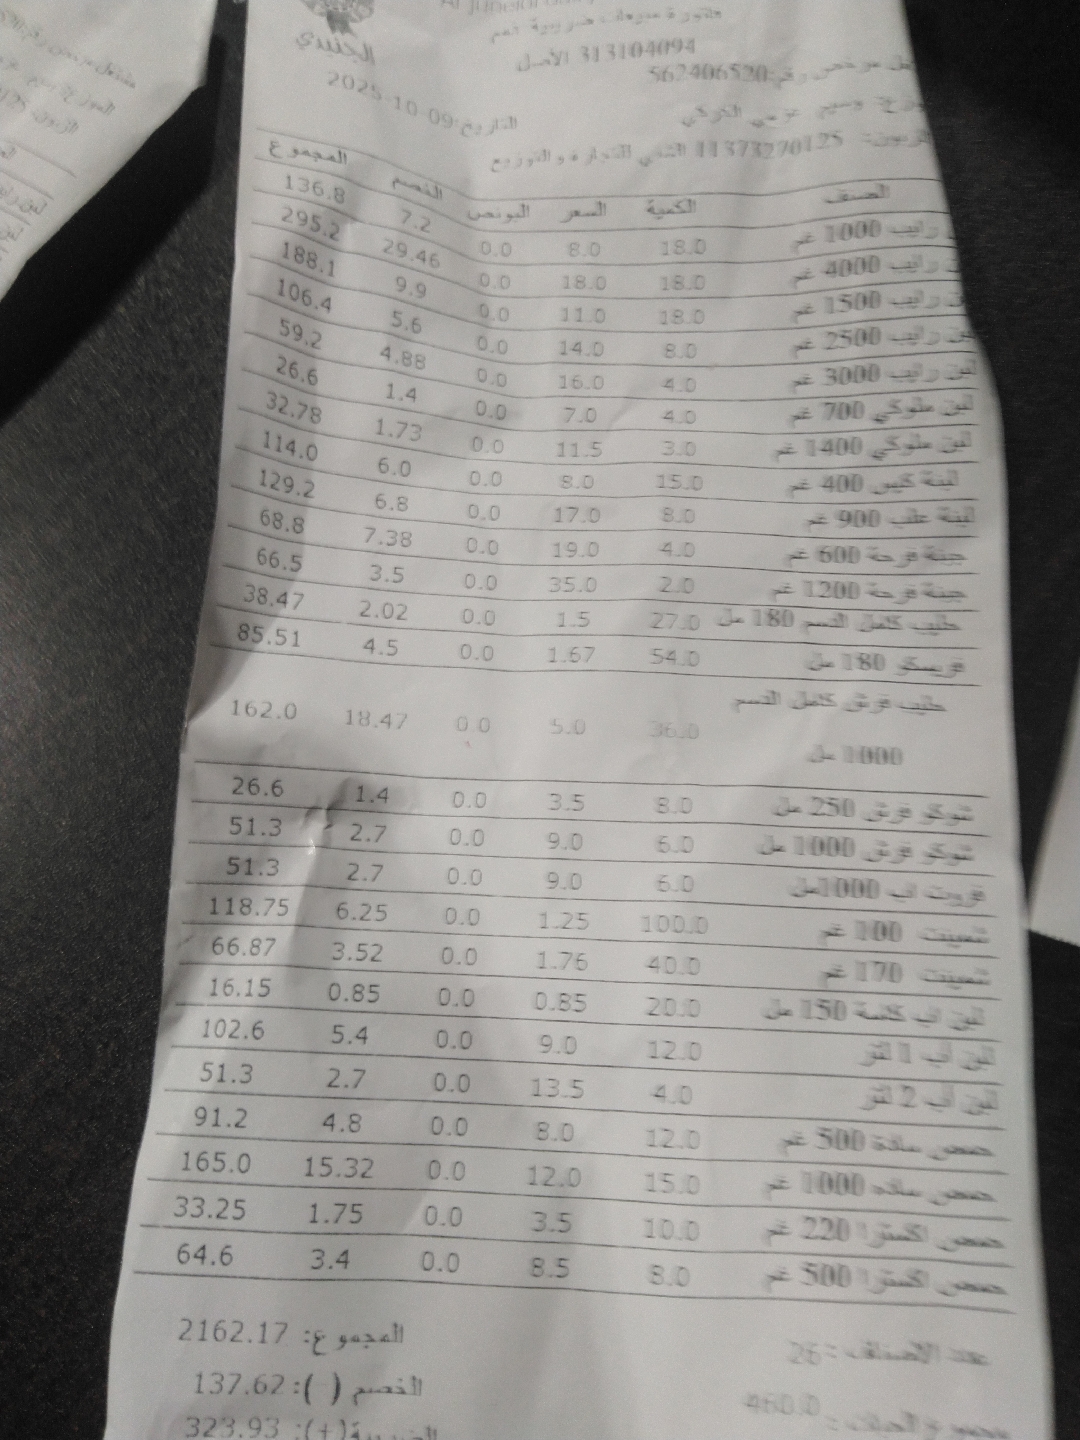 الجنيدي
فاتورة مبيعات ضريبية رقم
313104094 الأصل
مشغل مرخص رقم:562406520
التاريخ:09-10-2025
موزع: وسيم عوني الكركي
الزبون: 11373270125 التقي للتجارة والتوزيع
الصنف الكمية السعر البونص الخصم المجموع
لبن رايب 1000 غم 18.0 8.0 0.0 7.2 136.8
لبن رايب 4000 غم 18.0 18.0 0.0 29.46 295.2
لبن رايب 1500 غم 18.0 11.0 0.0 9.9 188.1
لبن رايب 2500 غم 8.0 14.0 0.0 5.6 106.4
لبن رايب 3000 غم 4.0 16.0 0.0 4.88 59.2
لبن ملوكي 700 غم 4.0 7.0 0.0 1.4 26.6
لبن ملوكي 1400 غم 3.0 11.5 0.0 1.73 32.78
لبنة كيس 400 غم 15.0 8.0 0.0 6.0 114.0
لبنة علب 900 غم 8.0 17.0 0.0 6.8 129.2
جبنة فرحة 600 غم 4.0 19.0 0.0 7.38 68.8
جبنة فرحة 1200 غم 2.0 35.0 0.0 3.5 66.5
حليب كامل الدسم 180 مل 27.0 1.5 0.0 2.02 38.47
فريسكو 180 مل 54.0 1.67 0.0 4.5 85.51
حليب فرش كامل الدسم
1000 مل 36.0 5.0 0.0 18.47 162.0
شوكو فرش 250 مل 8.0 3.5 0.0 1.4 26.6
شوكو فرش 1000 مل 6.0 9.0 0.0 2.7 51.3
فروت اب 1000مل 6.0 9.0 0.0 2.7 51.3
شمينت 100 غم 100.0 1.25 0.0 6.25 118.75
شمينت 170 غم 40.0 1.76 0.0 3.52 66.87
لبن اب كاسة 150 مل 20.0 0.85 0.0 0.85 16.15
لبن أب 1 لتر 12.0 9.0 0.0 5.4 102.6
لبن أب 2 لتر 4.0 13.5 0.0 2.7 51.3
حمص سادة 500 غم 12.0 8.0 0.0 4.8 91.2
حمص ساده 1000 غم 15.0 12.0 0.0 15.32 165.0
حمص اكسترا 220 غم 10.0 3.5 0.0 1.75 33.25
حمص اكسترا 500 غم 8.0 8.5 0.0 3.4 64.6
عدد الأصناف : 26 المجموع: 2162.17
مجموع الحبات : 460.0 الخصم ( ): 137.62
الضريبة(+): 323.93